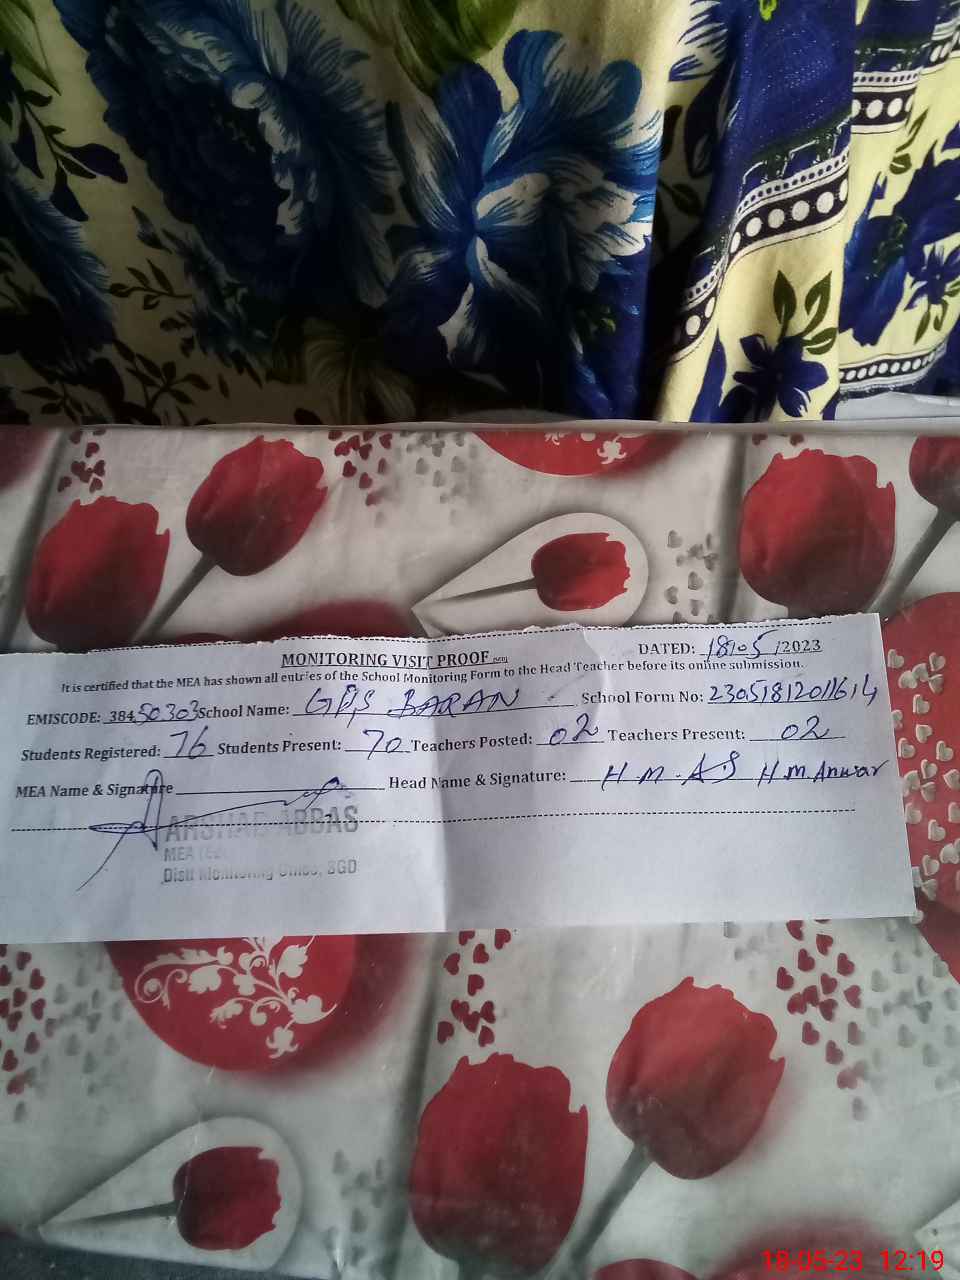 MONITORING VISIT PROOF
DATED: 18/05/2023
It is certified that the MEA has shown all entries of the School Monitoring Form to the Head Teacher before its online submission.
EMISCODE: 38450303 School Name: GPS BARAN School Form No:
Students Registered: 76 Students Present: 70 Teachers Posted: 02 Teachers Present: 02
MEA Name & Signature Head Name & Signature: H.M. Anwar
ARSHAD ABBAS
MEA
Distt Monitoring Office, SGD
18-05-23 12:19